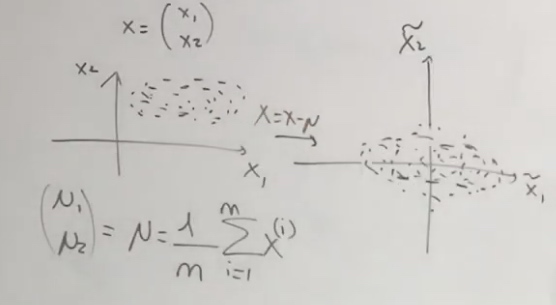 x = (x₁ x₂)
x₂
x₁
X = x-μ
x̃₂
x̃₁
(μ₁ μ₂) = μ = 1/m ∑ᵢ₌₁ᵐ x⁽ⁱ⁾